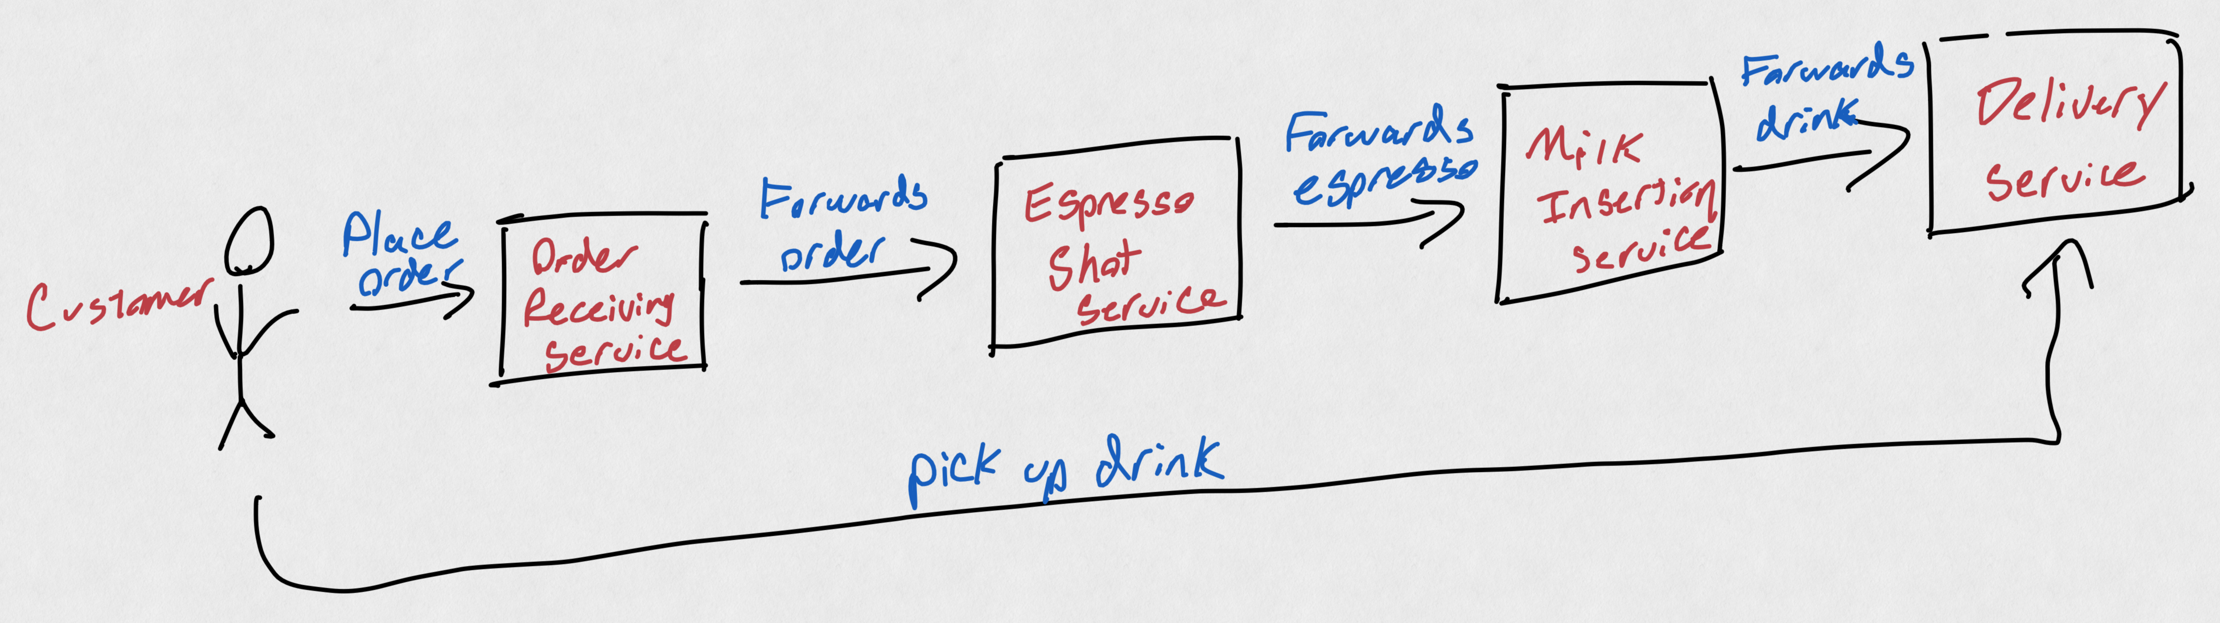 Customer
Place
order
Order
Receiving
service
Forwards
order
Espresso
Shot
service
Forwards
espresso
Milk
Insertion
service
Forwards
drink
Delivery
service
pick up drink